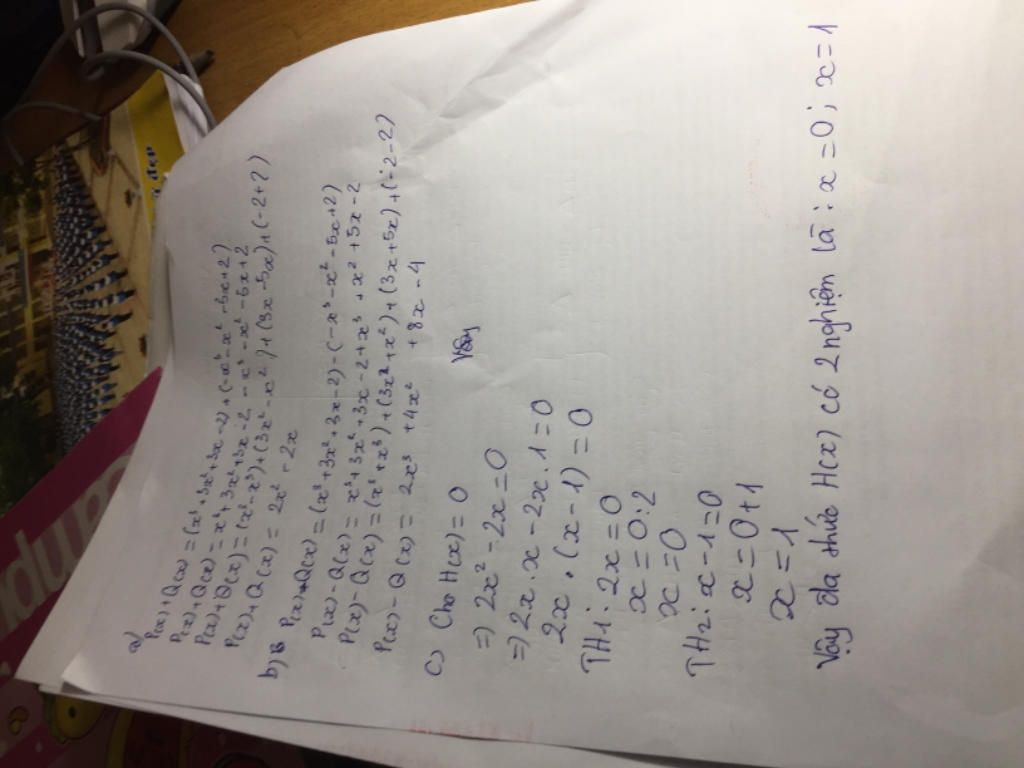 a)
P(x)+Q(x) = (x³+3x²+3x-2)+(-x³-x²-5x+2)
P(x)+Q(x) = x³+3x²+3x-2-x³-x²-5x+2
P(x)+Q(x) = (x³-x³)+(3x²-x²)+(3x-5x)+(-2+2)
P(x)+Q(x) = 2x²-2x
b) P(x)-Q(x) = (x³+3x²+3x-2)-(-x³-x²-5x+2)
P(x)-Q(x) = x³+3x²+3x-2+x³+x²+5x-2
P(x)-Q(x) = (x³+x³)+(3x²+x²)+(3x+5x)+(-2-2)
P(x)-Q(x) = 2x³ +4x² +8x-4
c) Cho H(x)=0
Vậy
=) 2x²-2x=0
=) 2x.x-2x.1=0
2x.(x-1)=0
TH1: 2x=0
x=0:2
x=0
TH2: x-1=0
x=0+1
x=1
Vậy đa thức H(x) có 2 nghiệm là: x=0; x=1
đẹp